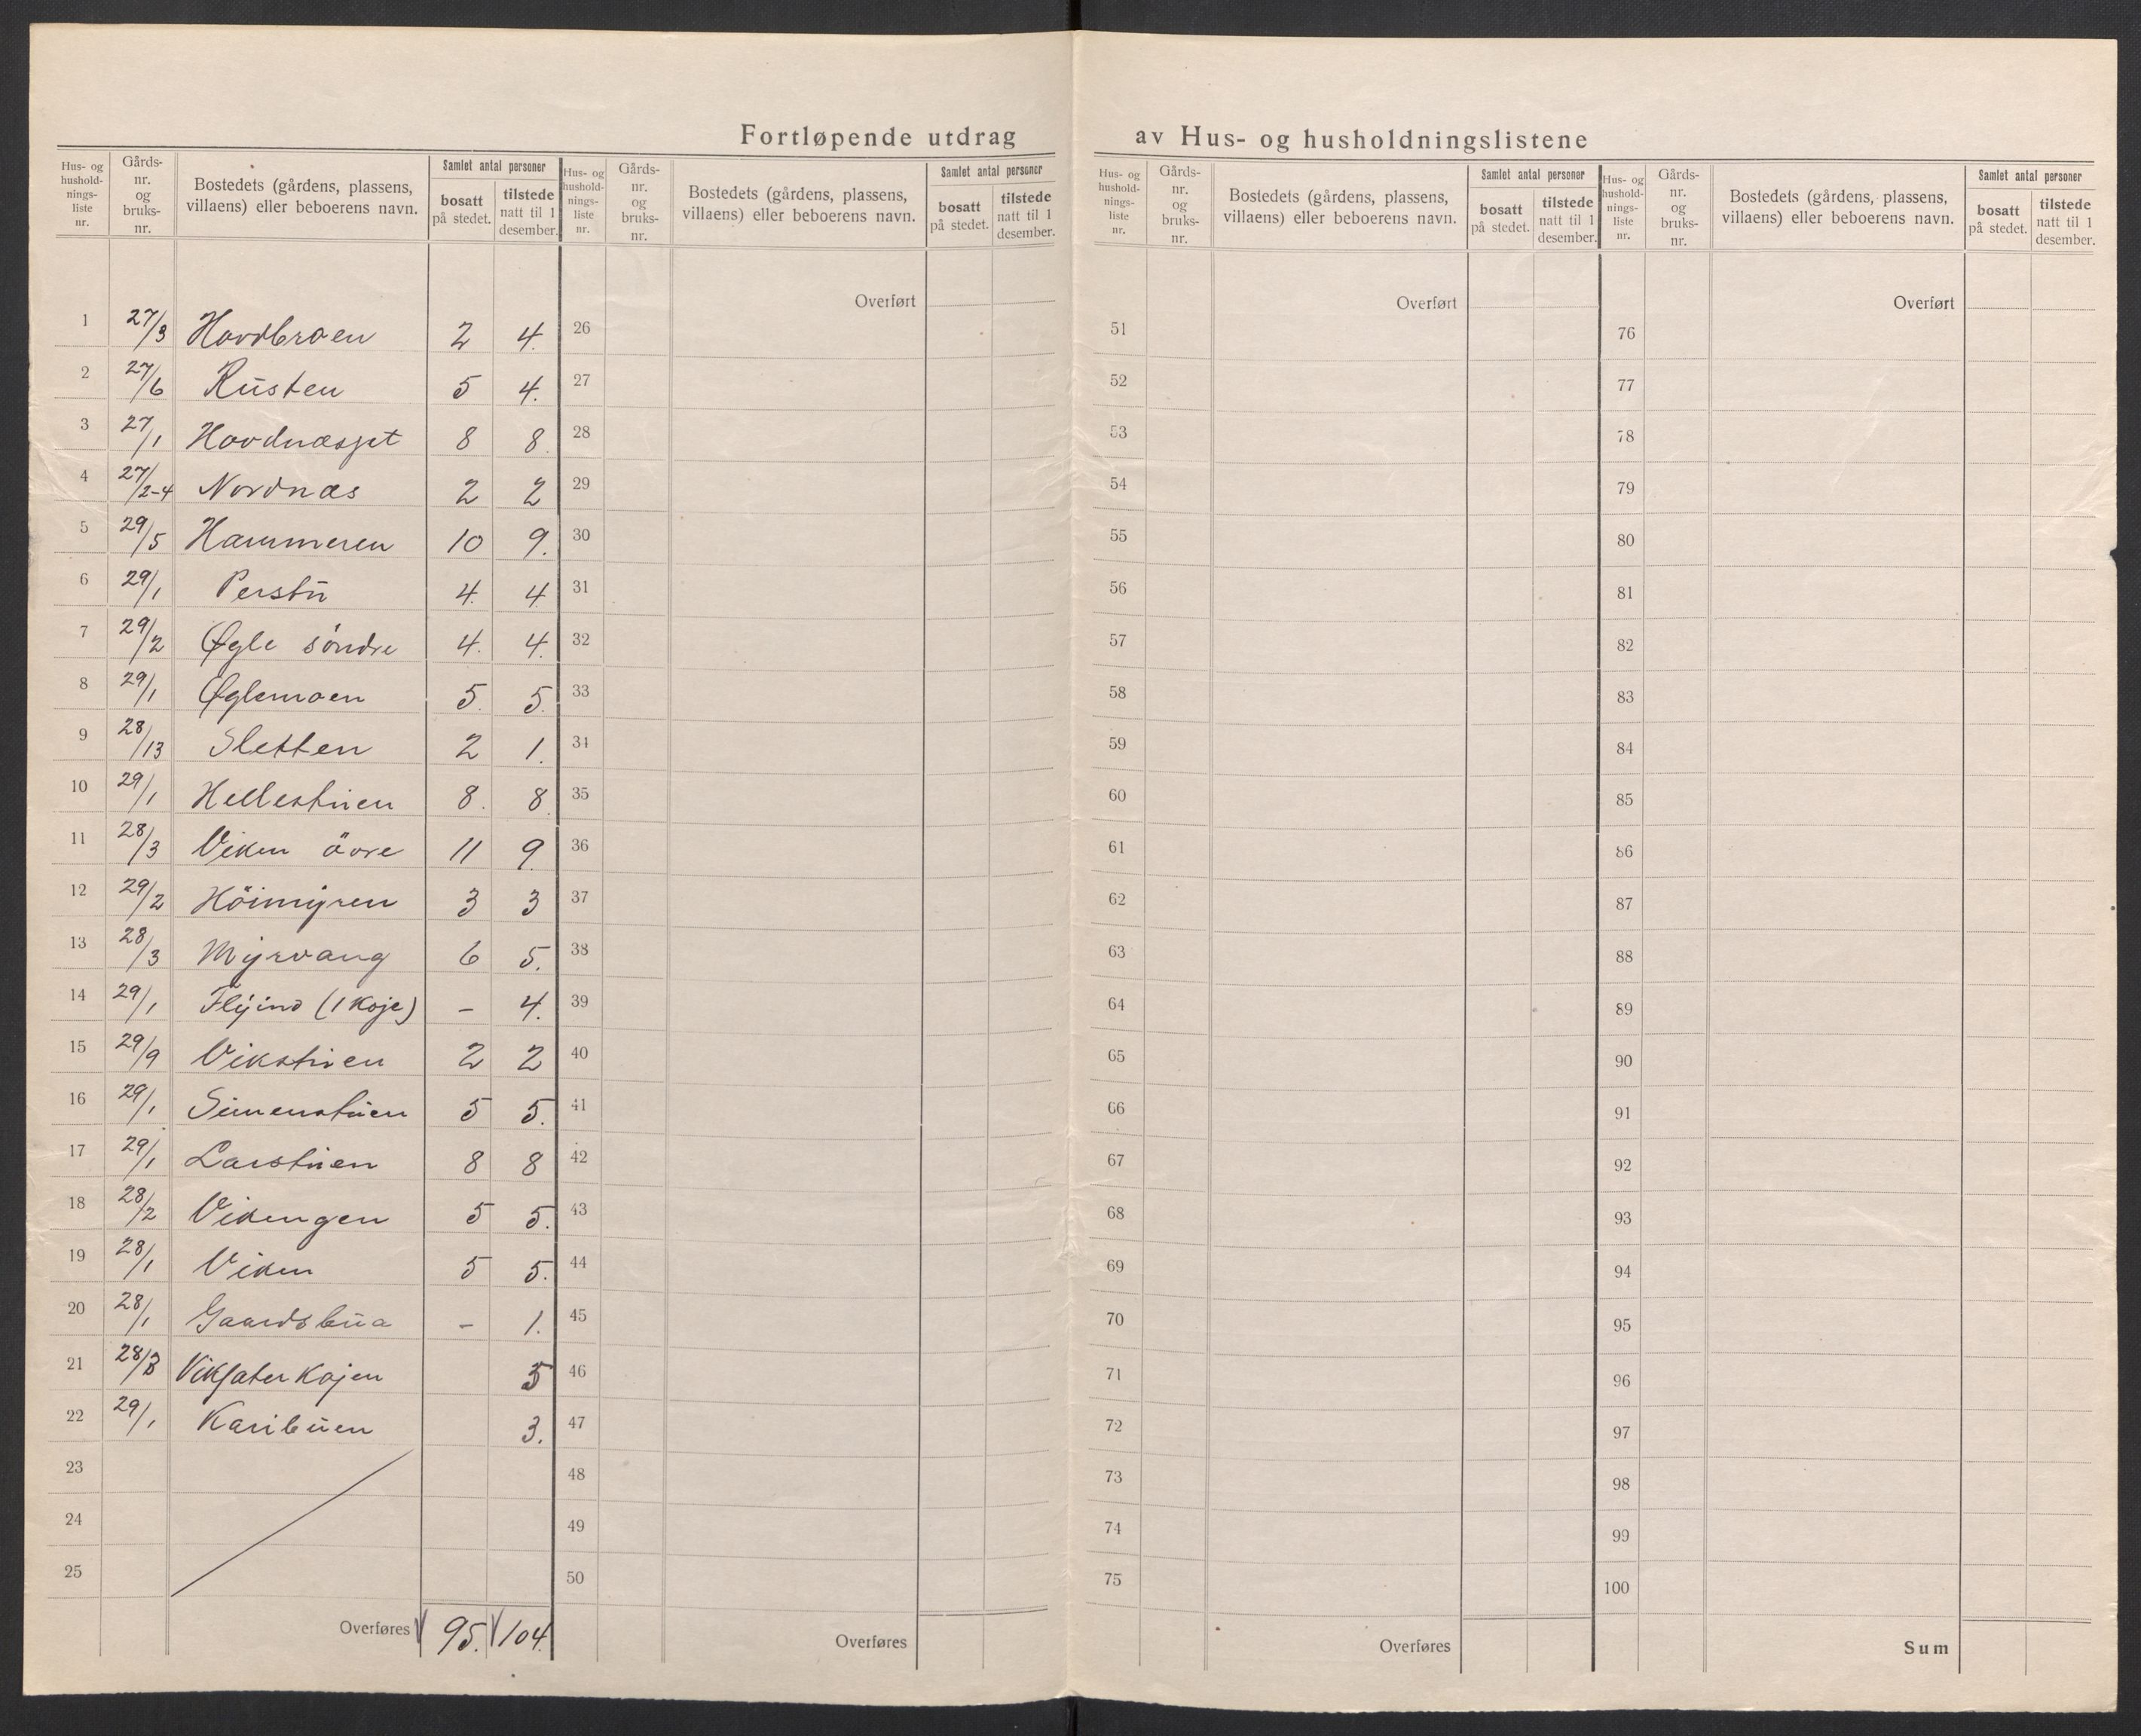 Fortløpende utdrag av Hus- og husholdningslistene
Hus- og husholdnings-liste nr. | Gårds-nr. og bruks-nr. | Bostedets (gårdens, plassens, villaens) eller beboerens navn. | Samlet antal personer | bosatt på stedet. | tilstede natt til 1 desember.
1 27/3 Hovdbraen 2 4.
2 27/6 Rusten 5 4.
3 27/1 Hovdnæsset 8 8.
4 27/2-4 Nordnæs 2 2
5 29/5 Hammeren 10 9.
6 29/1 Perstu 4. 4.
7 29/2 Øgle söndre 4. 4.
8 29/1 Øglemoen 5. 5.
9 28/13 Sletten 2 1.
10 29/1 Hellestuen 8. 8.
11 28/3 Viken övre 11 9.
12 29/2 Höimyren 3 3
13 28/3 Myrvang 6 5.
14 29/1 (1 Koje) – 4.
15 29/9 Vikstuen 2 2
16 29/1 Simenstuen 5 5.
17 29/1 Larstuen 8 8
18 28/2 Vikengen 5 5.
19 28/1 Viken 5 5.
20 28/1 Gaardsbua – 1.
21 Viksæter Kojen 5
22 29/1 Karibuen 3.
23
24
25
Overføres 95. 104.
Hus- og husholdnings-liste nr. | Gårds-nr. og bruks-nr. | Bostedets (gårdens, plassens, villaens) eller beboerens navn. | Samlet antal personer | bosatt på stedet. | tilstede natt til 1 desember.
Overført
26
27
28
29
30
31
32
33
34
35
36
37
38
39
40
41
42
43
44
45
46
47
48
49
50
Overføres
Hus- og husholdnings-liste nr. | Gårds-nr. og bruks-nr. | Bostedets (gårdens, plassens, villaens) eller beboerens navn. | Samlet antal personer | bosatt på stedet. | tilstede natt til 1 desember.
Overført
51
52
53
54
55
56
57
58
59
60
61
62
63
64
65
66
67
68
69
70
71
72
73
74
75
Overføres
Hus- og husholdnings-liste nr. | Gårds-nr. og bruks-nr. | Bostedets (gårdens, plassens, villaens) eller beboerens navn. | Samlet antal personer | bosatt på stedet. | tilstede natt til 1 desember.
Overført
76
77
78
79
80
81
82
83
84
85
86
87
88
89
90
91
92
93
94
95
96
97
98
99
100
Sum